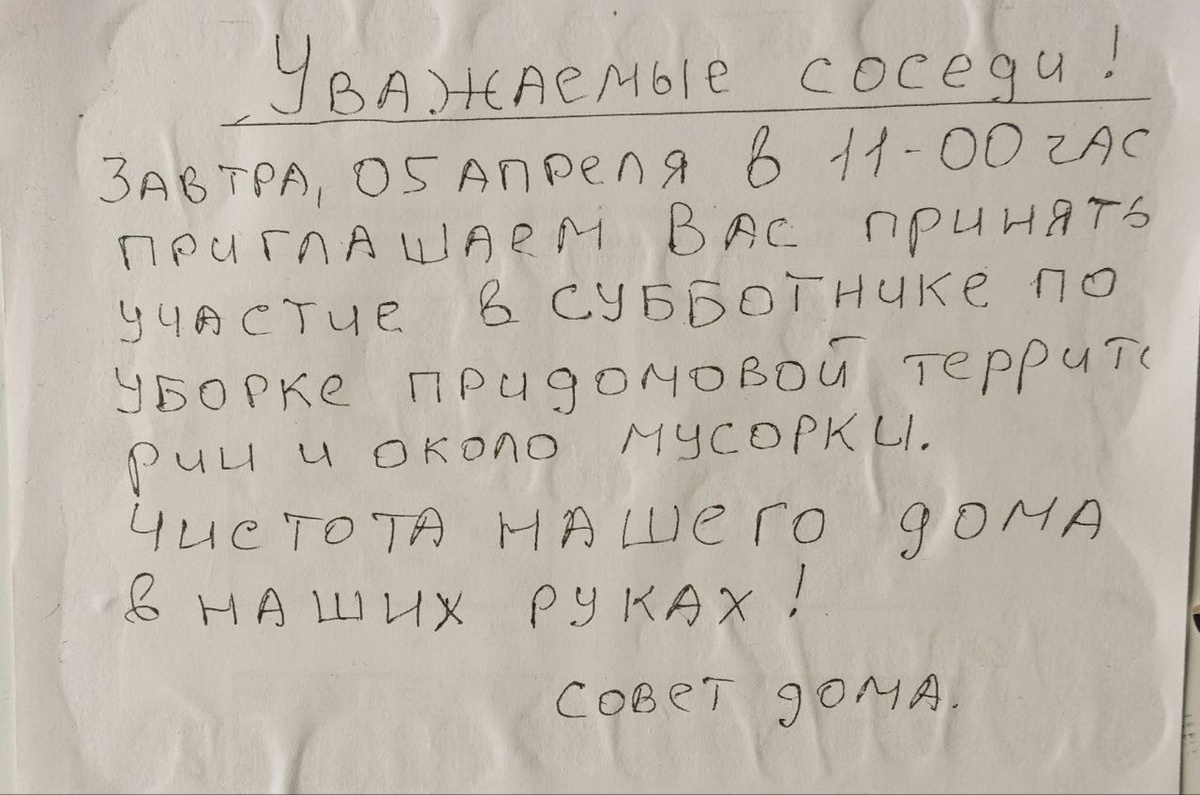 Уважаемые соседи!
Завтра, 05 апреля в 11-00 час
приглашаем Вас принять
участие в субботнике по
уборке придомовой террито
рии и около мусорки.
Чистота нашего дома
в наших руках!
Совет дома.